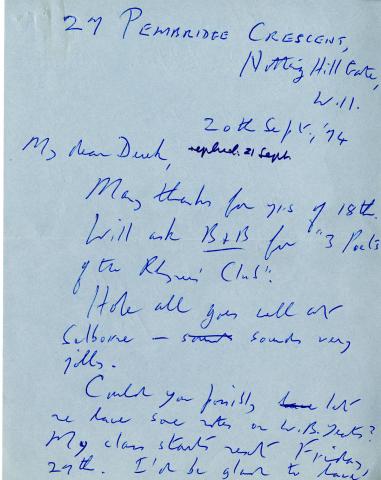 27 PEMBRIDGE CRESCENT,
Notting Hill Gate,
W.11.
20th Sept., '74
My dear Derek, replied. 21 Sept.
Many thanks for yrs of 18th.
Will ask B+B for "3 Poets
of the Rhymers' Club".
Hope all goes well at
Selborne — sounds very
jolly.
Could you possibly let
me have some notes on W.B. Yeats?
My class starts next Friday,
27th. I'd be glad to have